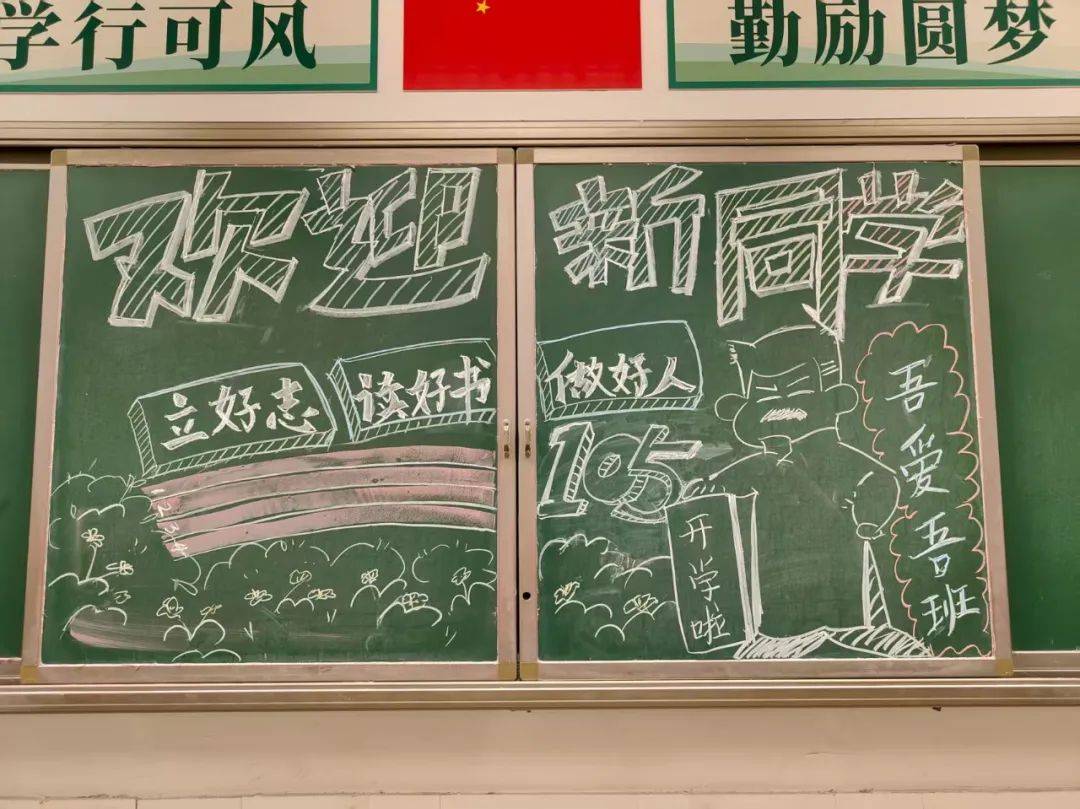 学行可风
勤励圆梦
欢迎新同学
立好志
读好书
做好人
105
1 2 3 4
开学啦
吾爱吾班